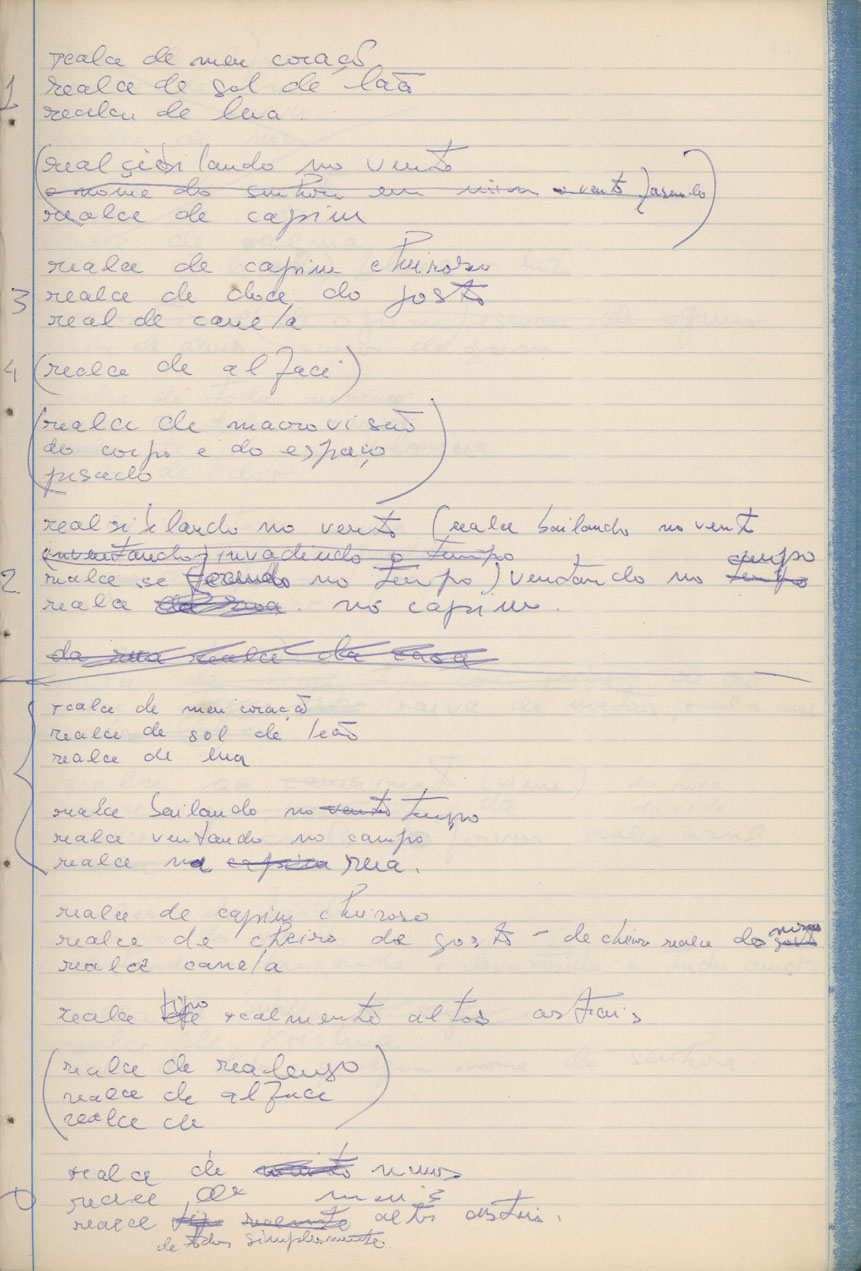 realce de meu coração
1 realce de sol de latã
realce de lua.
(realçibilando no vento
o nome do senhor em mim o vento fazendo
realce de capim)
realce de capim cheiroso
3 realce de doce do gosto
real de canela
4 (realce de alface)
(realce de macrovisão
do corpo e do espaço
pisado)
realsibilando no vento (realce bailando no vento
(inventando) invadindo o tempo
campo
2 realce se fazendo no tempo) ventando no tempo
realce da rua no capim.
da rua realce da casa
realce de meu coração
realce de sol de leão
realce de lua
realce bailando no vento tempo
realce ventando no campo
realce na capim rua.
realce de capim cheiroso
realce de cheiro do gosto – de cheiro realce do gosto
realce canela
tipo
realce de realmente altos astrais
(realce de realengo
realce de alface
realce de)
realce de muito menos
realce de mais
realce tip realmente altos astrais.
de todos simplesmente